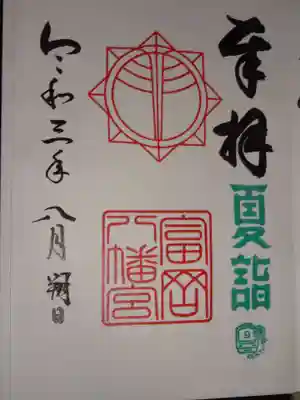 奉拝
夏詣
富岡
八幡宮
令和三年八月朔日